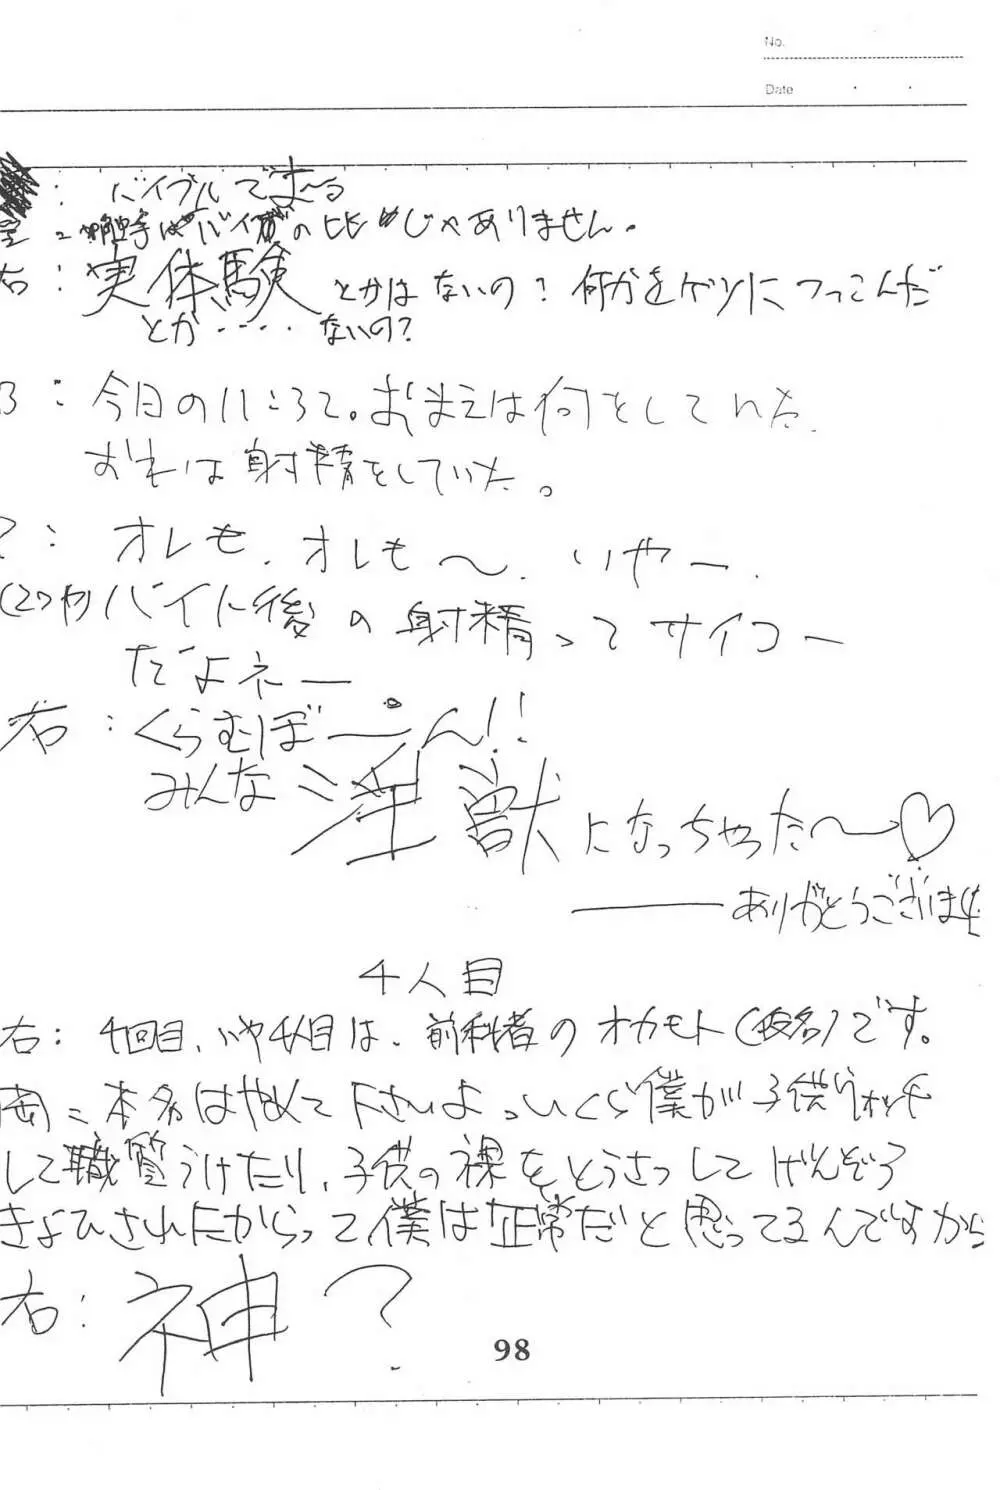 No.
Date
: バイブルでま〜る
室: 触手はバイブの比じゃありません。
右: 実体験とかはないの? 何かをケツにつっこんだ
とか・・・・ないの?
: 今日の11ころて。おまえは何をしていた
おれは射精をしていた。
?: オレも、オレも〜、いやー、
バイト後の射精ってサイコー
だよネー
右: くらむぼーん!!
みんな淫獣になっちゃった〜♡
ありがとうございま
4人目
右: 4回目、いや4人目は、前科者のオカモト(仮名)です。
岡: 本名はやめて下さいよ。いくら僕が子供ウォッチ
して職質うけたり、子供の裸をとうさつしてげんぞう
きょひされたからって僕は正常だと思ってるんですから
右: 神?
98